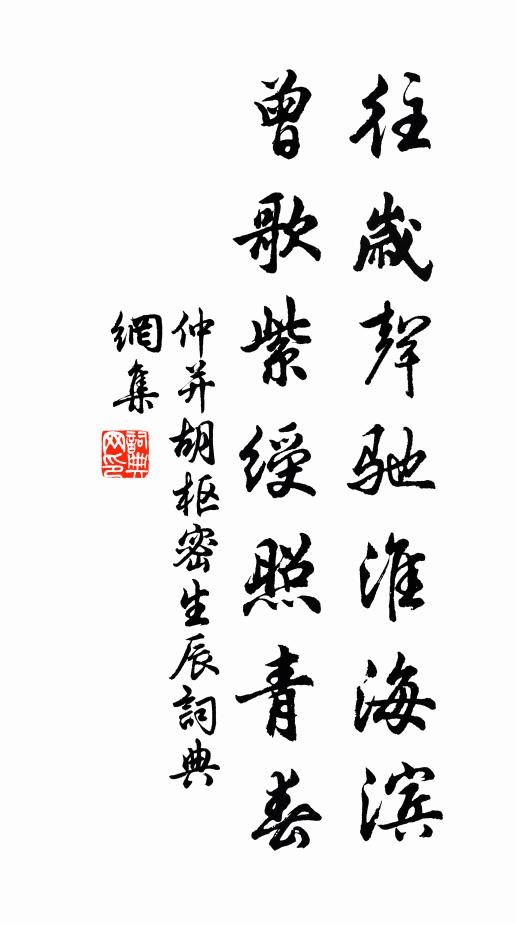 往歲聲驰淮海滨
曾歌紫綬照青春
仲并胡枢密生辰詞典
網集
詞典網印